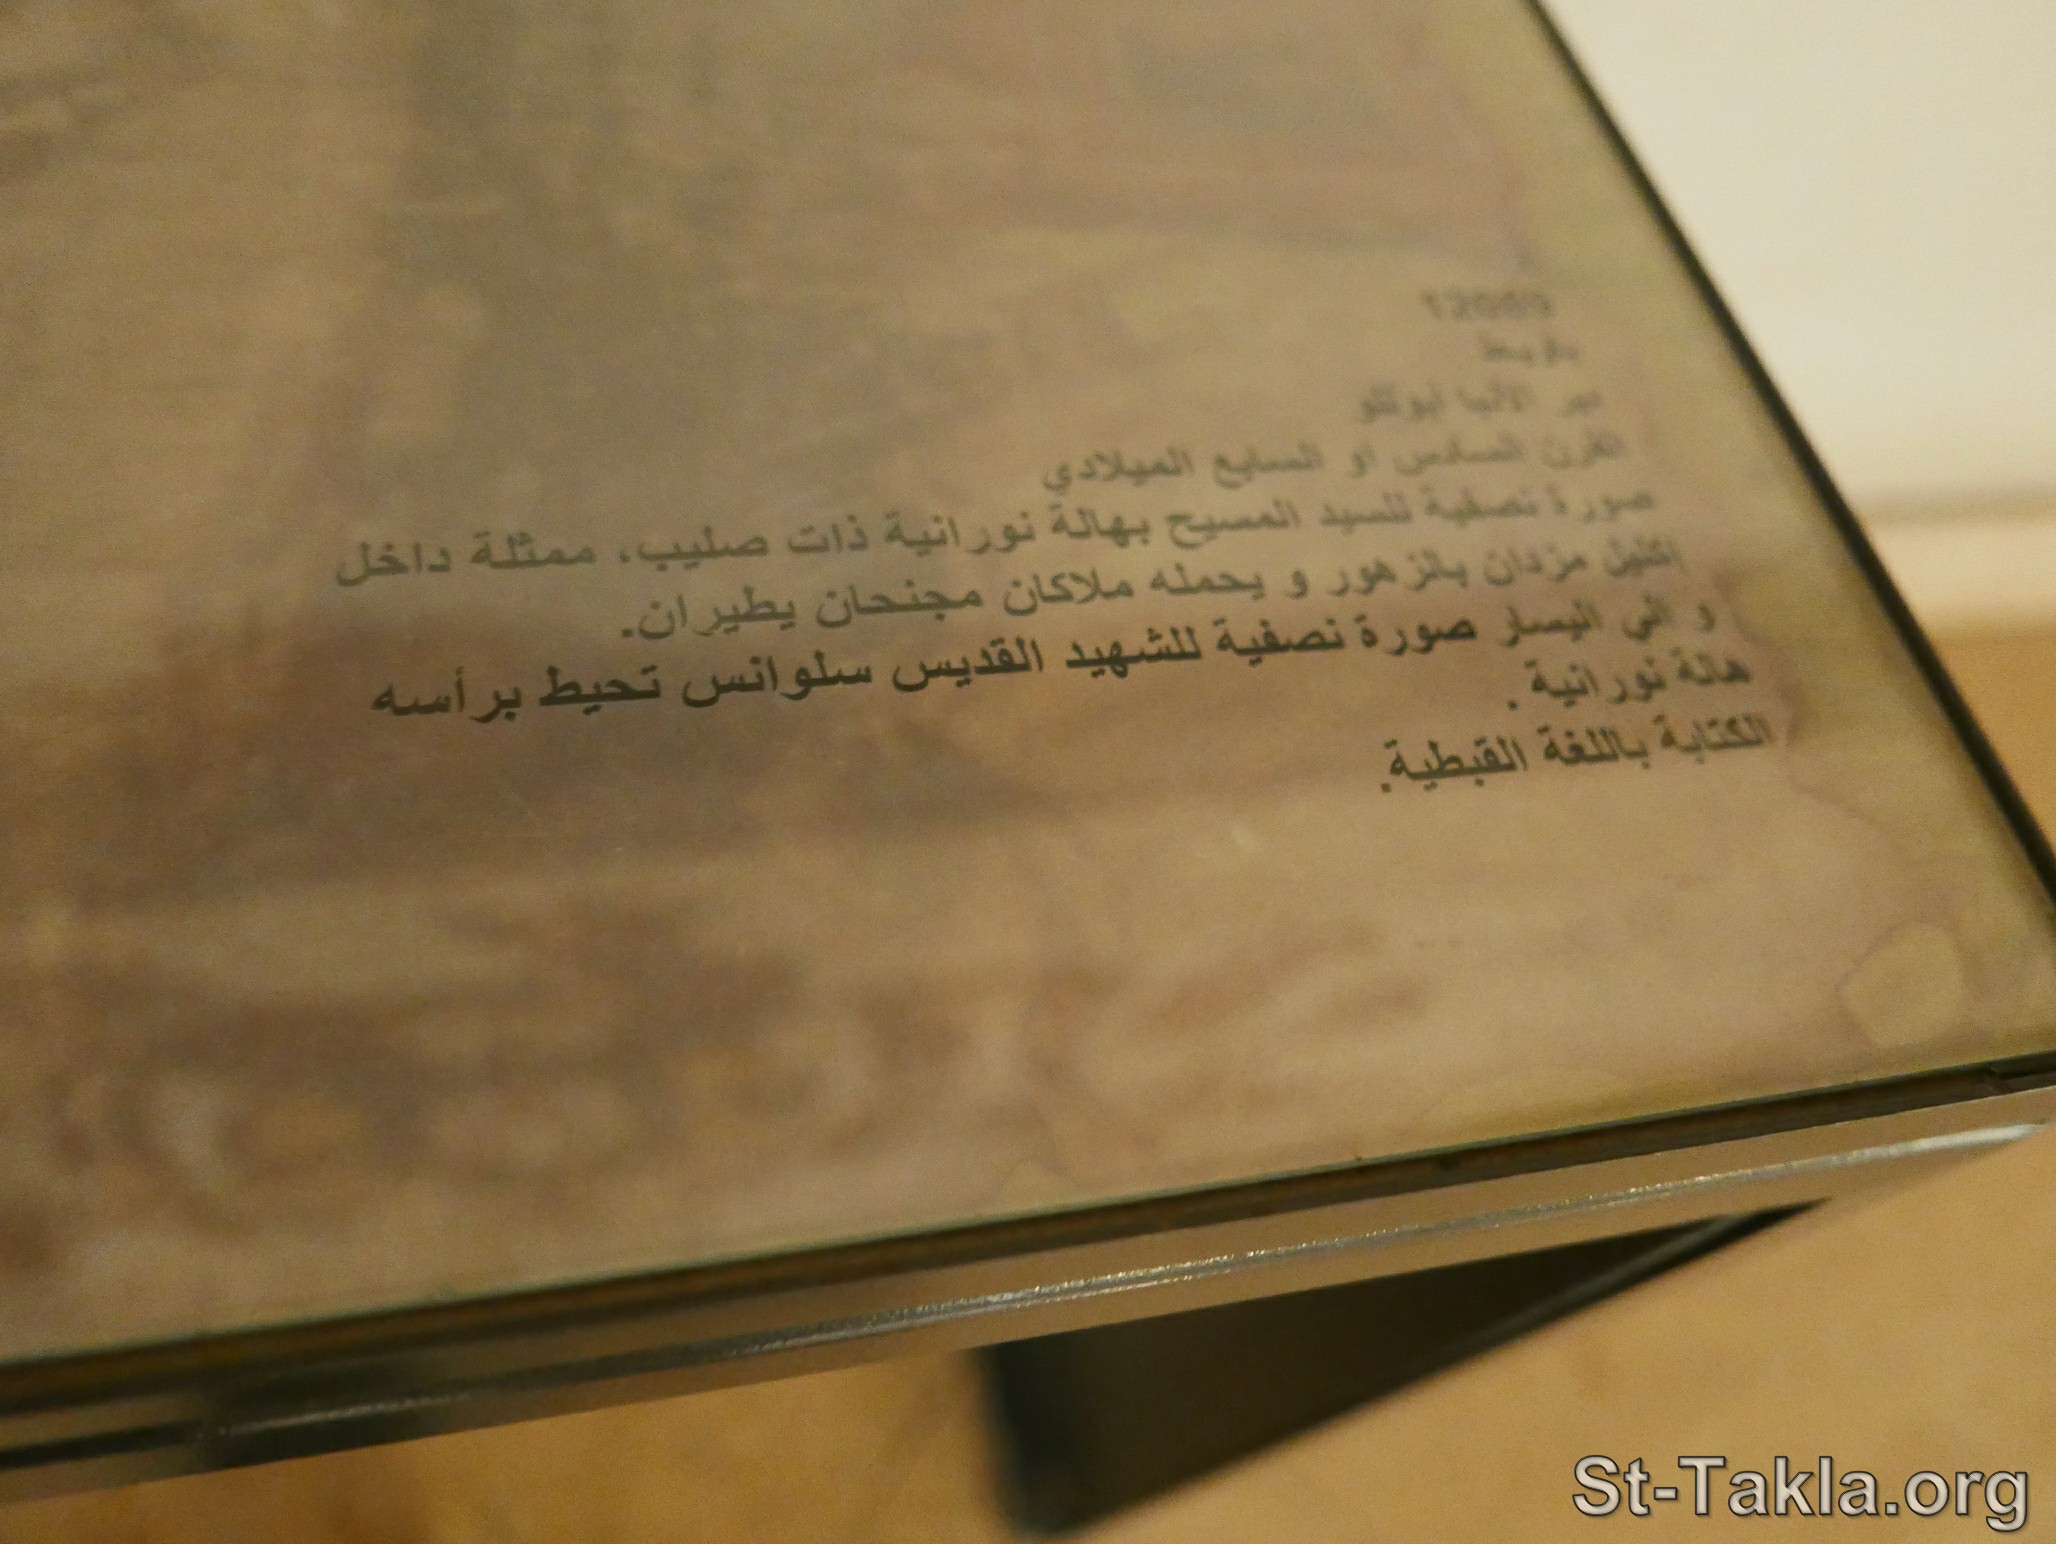 باويط
دير الأنبا أبوللو
القرن السادس او السابع الميلادي
صورة نصفية للسيد المسيح بهالة نورانية ذات صليب، ممثلة داخل
اكليل مزدان بالزهور و يحمله ملاكان مجنحان يطيران.
و الي اليسار صورة نصفية للشهيد القديس سلوانس تحيط برأسه
هالة نورانية .
الكتابة باللغة القبطية.
St-Takla.org